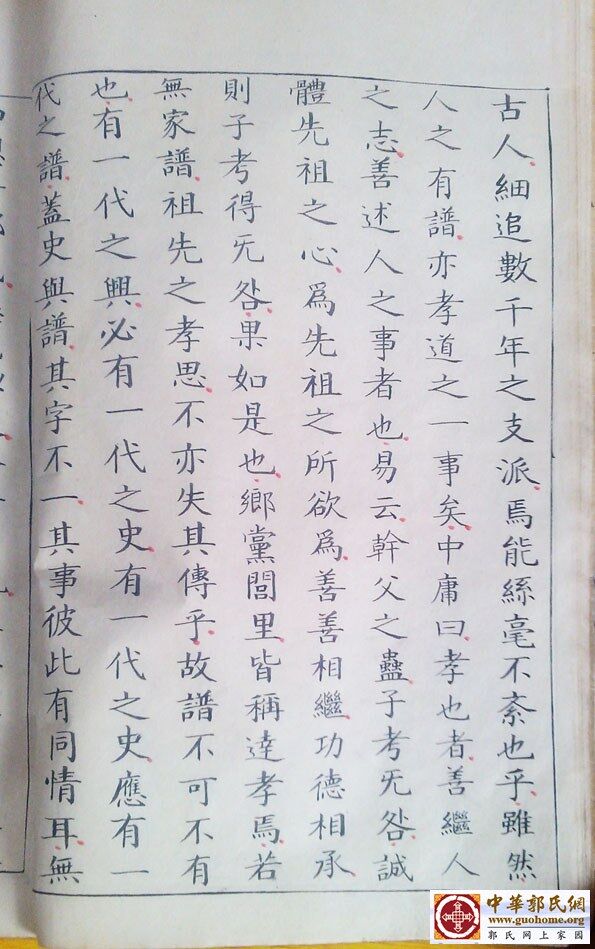 古人細追數千年之支派焉能絲毫不紊也乎雖然
人之有譜亦孝道之一事矣中庸曰孝也者善繼人
之志善述人之事者也易云幹父之蠱子考旡咎誠
體先祖之心為先祖之所欲為善善相繼功德相承
則子考得旡咎果如是也鄉黨閭里皆稱達孝焉若
無家譜祖先之孝思不亦失其傳乎故譜不可不有
也有一代之興必有一代之史有一代之史應有一
代之譜蓋史與譜其字不一其事彼此有同情耳無
中華郭氏網
www.guohome.org
郭氏网上家园